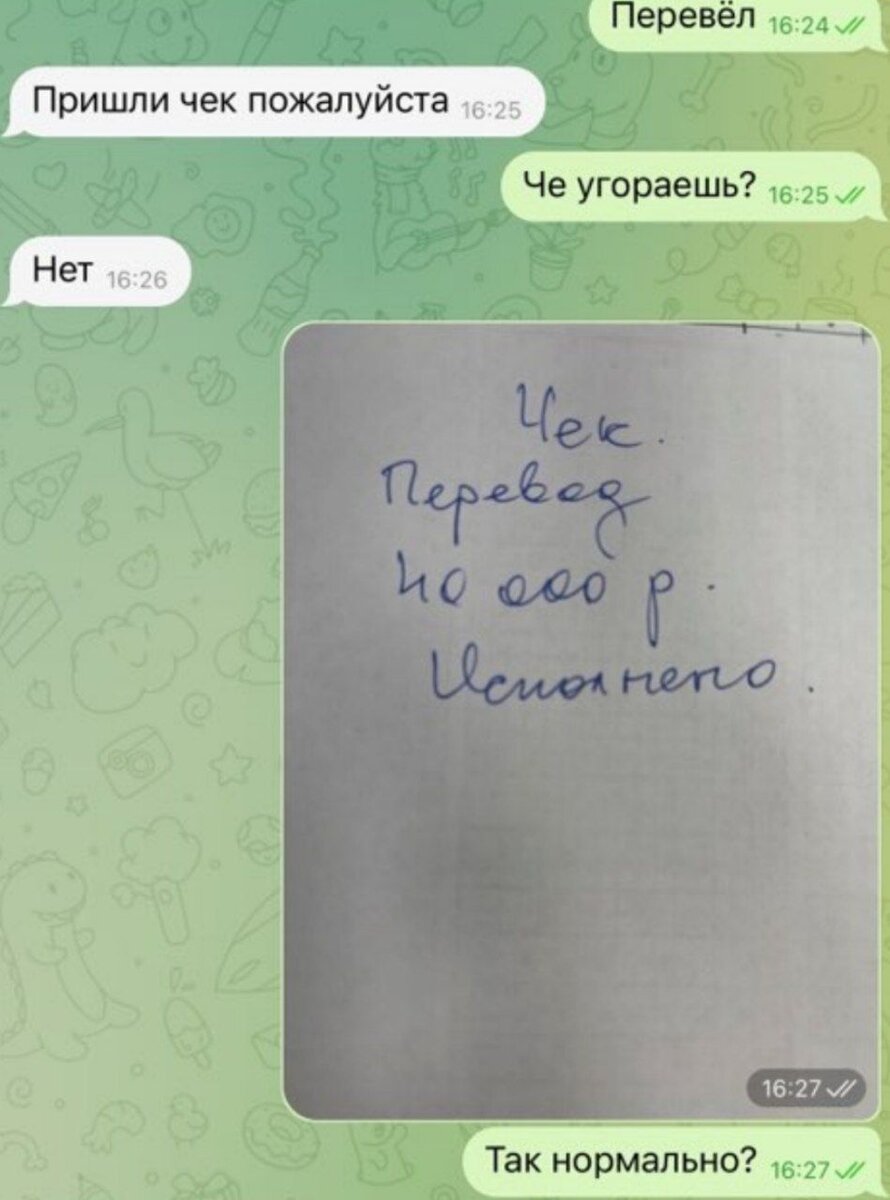 Перевёл 16:24
Пришли чек пожалуйста 16:25
Че угораешь? 16:25
Нет 16:26
Чек.
Перевод
40 000 р.
Исполнено.
16:27
Так нормально? 16:27